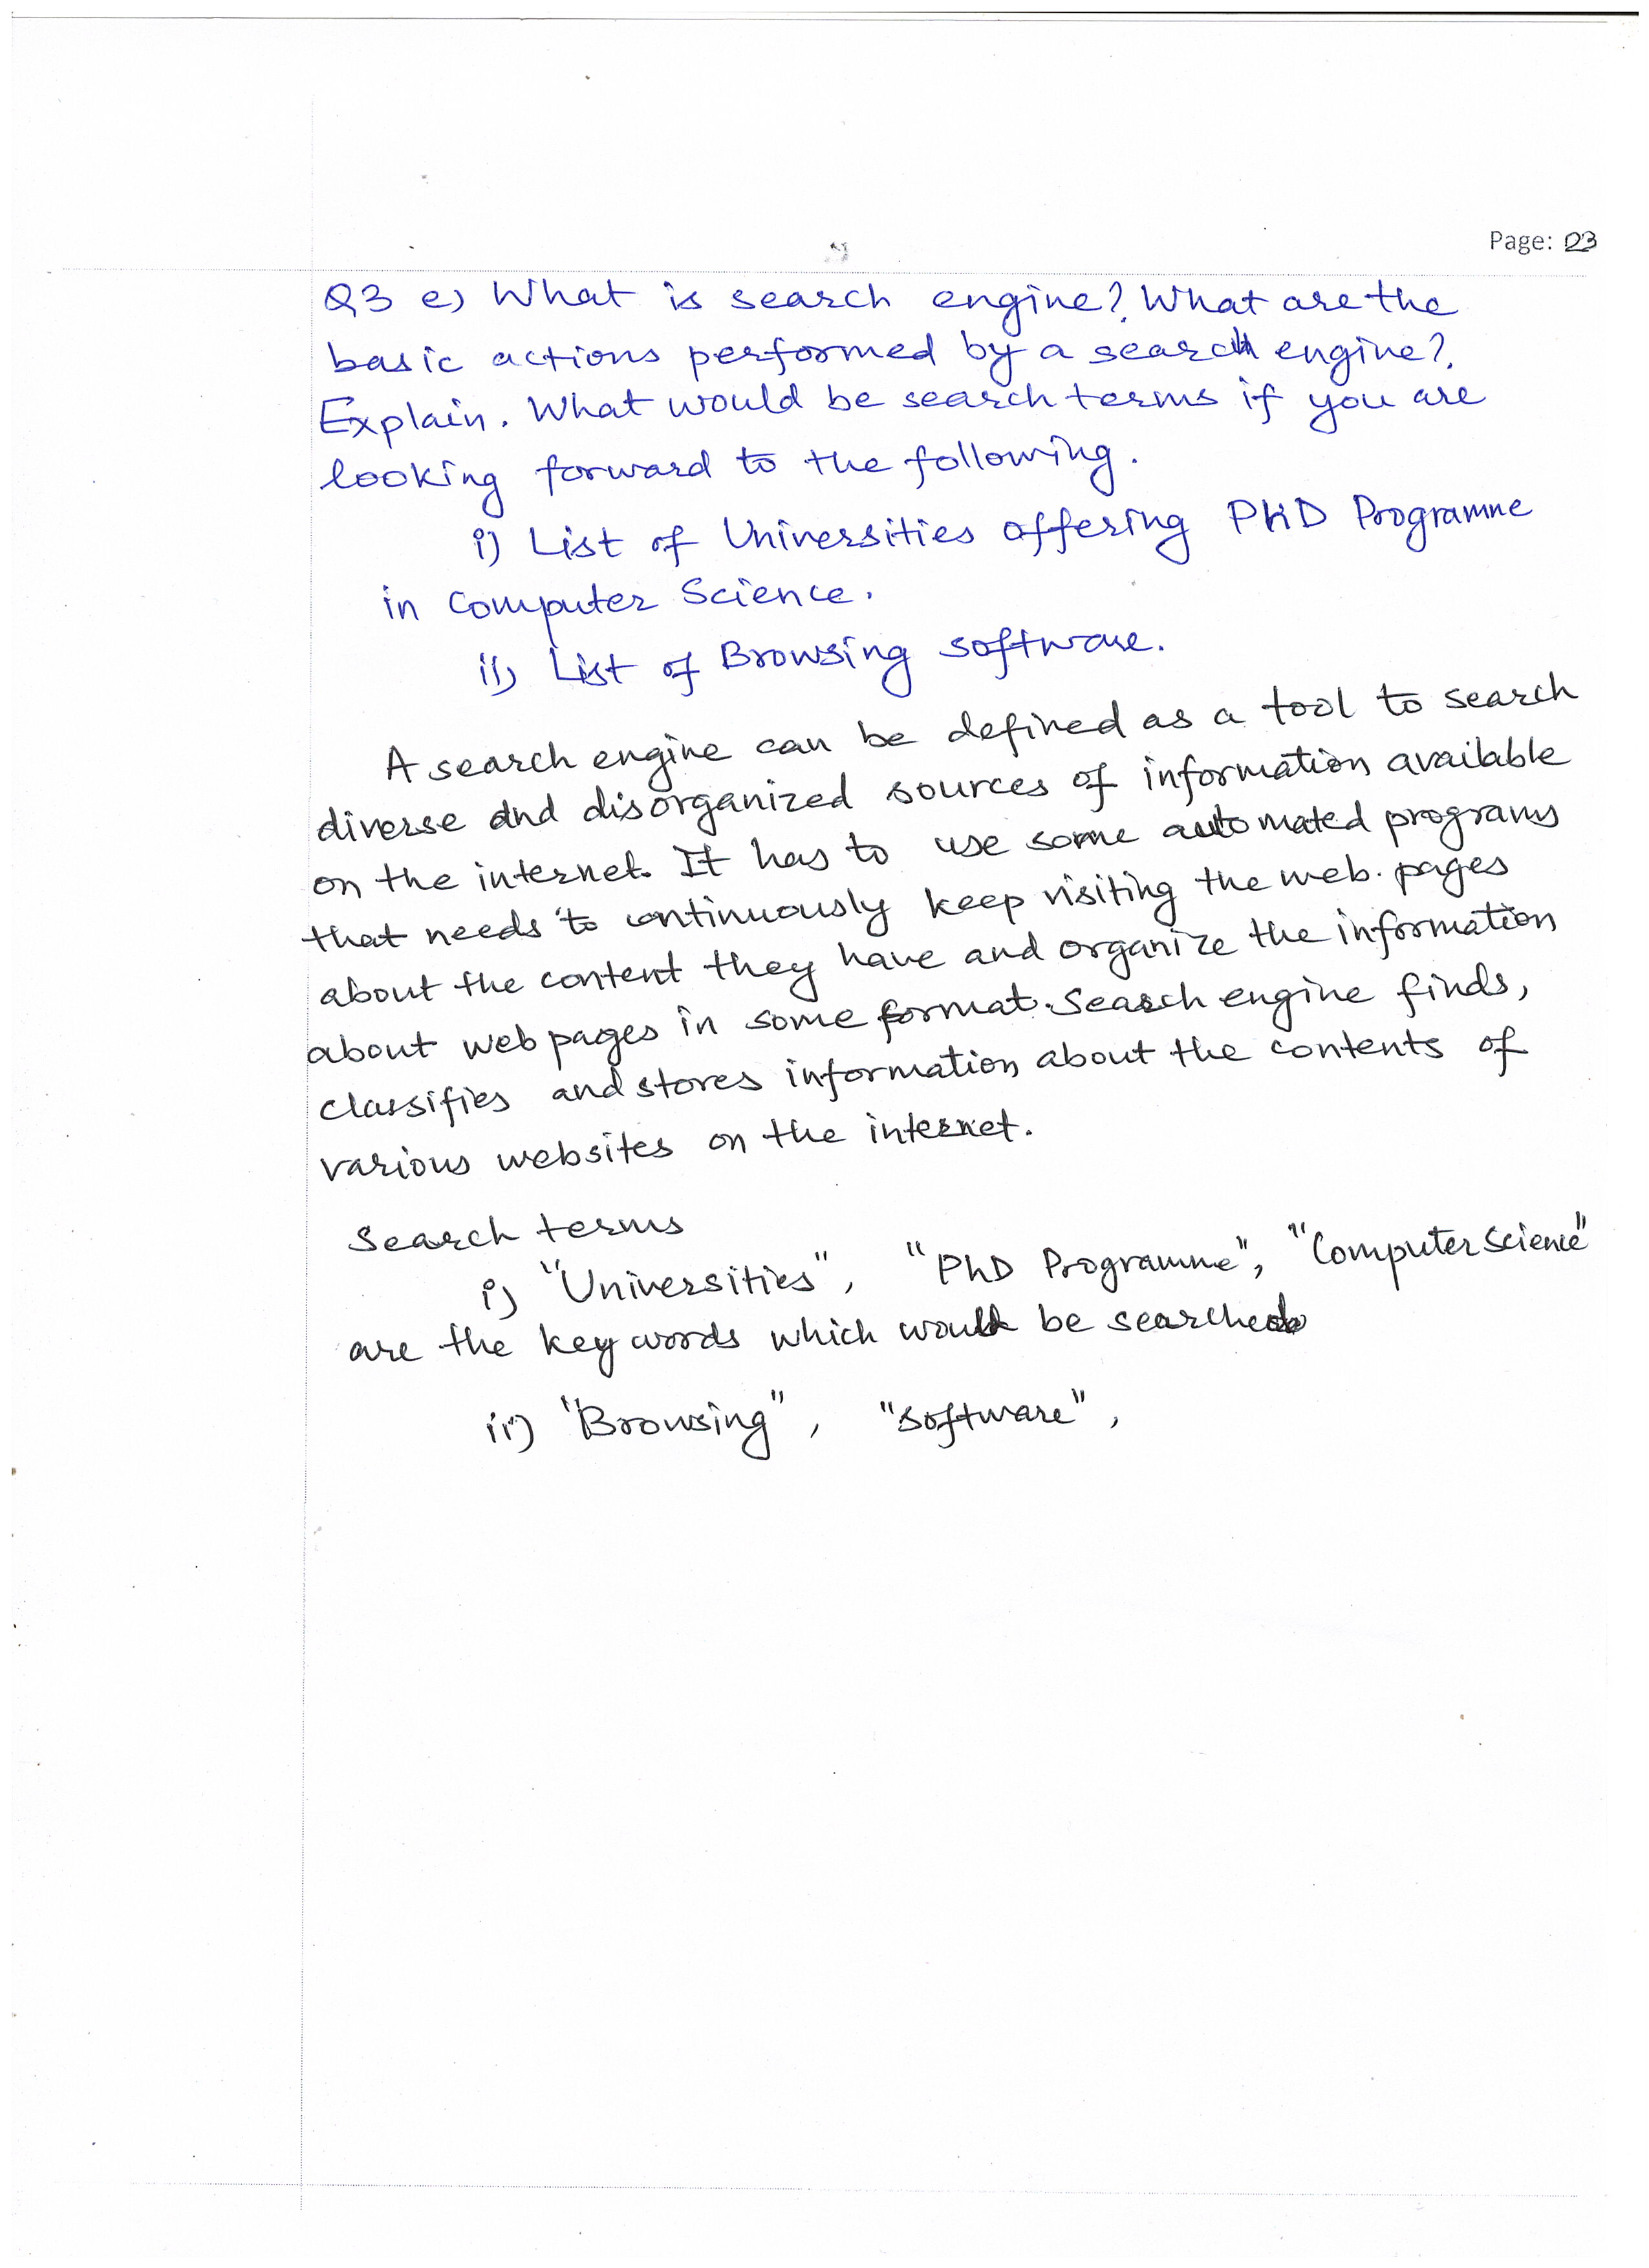 Page: 03
Q3 e) What is search engine? What are the
basic actions performed by a search engine?
Explain. What would be search terms if you are
looking forward to the following.
i) List of Universities offering PhD Programme
in Computer Science.
ii) List of Browsing software.
A search engine can be defined as a tool to search
diverse and disorganized sources of information available
on the internet. It has to use some automated programs
that needs to continuously keep visiting the web. pages
about the content they have and organize the information
about web pages in some format. Search engine finds,
classifies and stores information about the contents of
various websites on the internet.
Search terms
i) "Universities", "PhD Programme", "Computer Science"
are the key words which would be searched
ii) "Browsing", "Software",